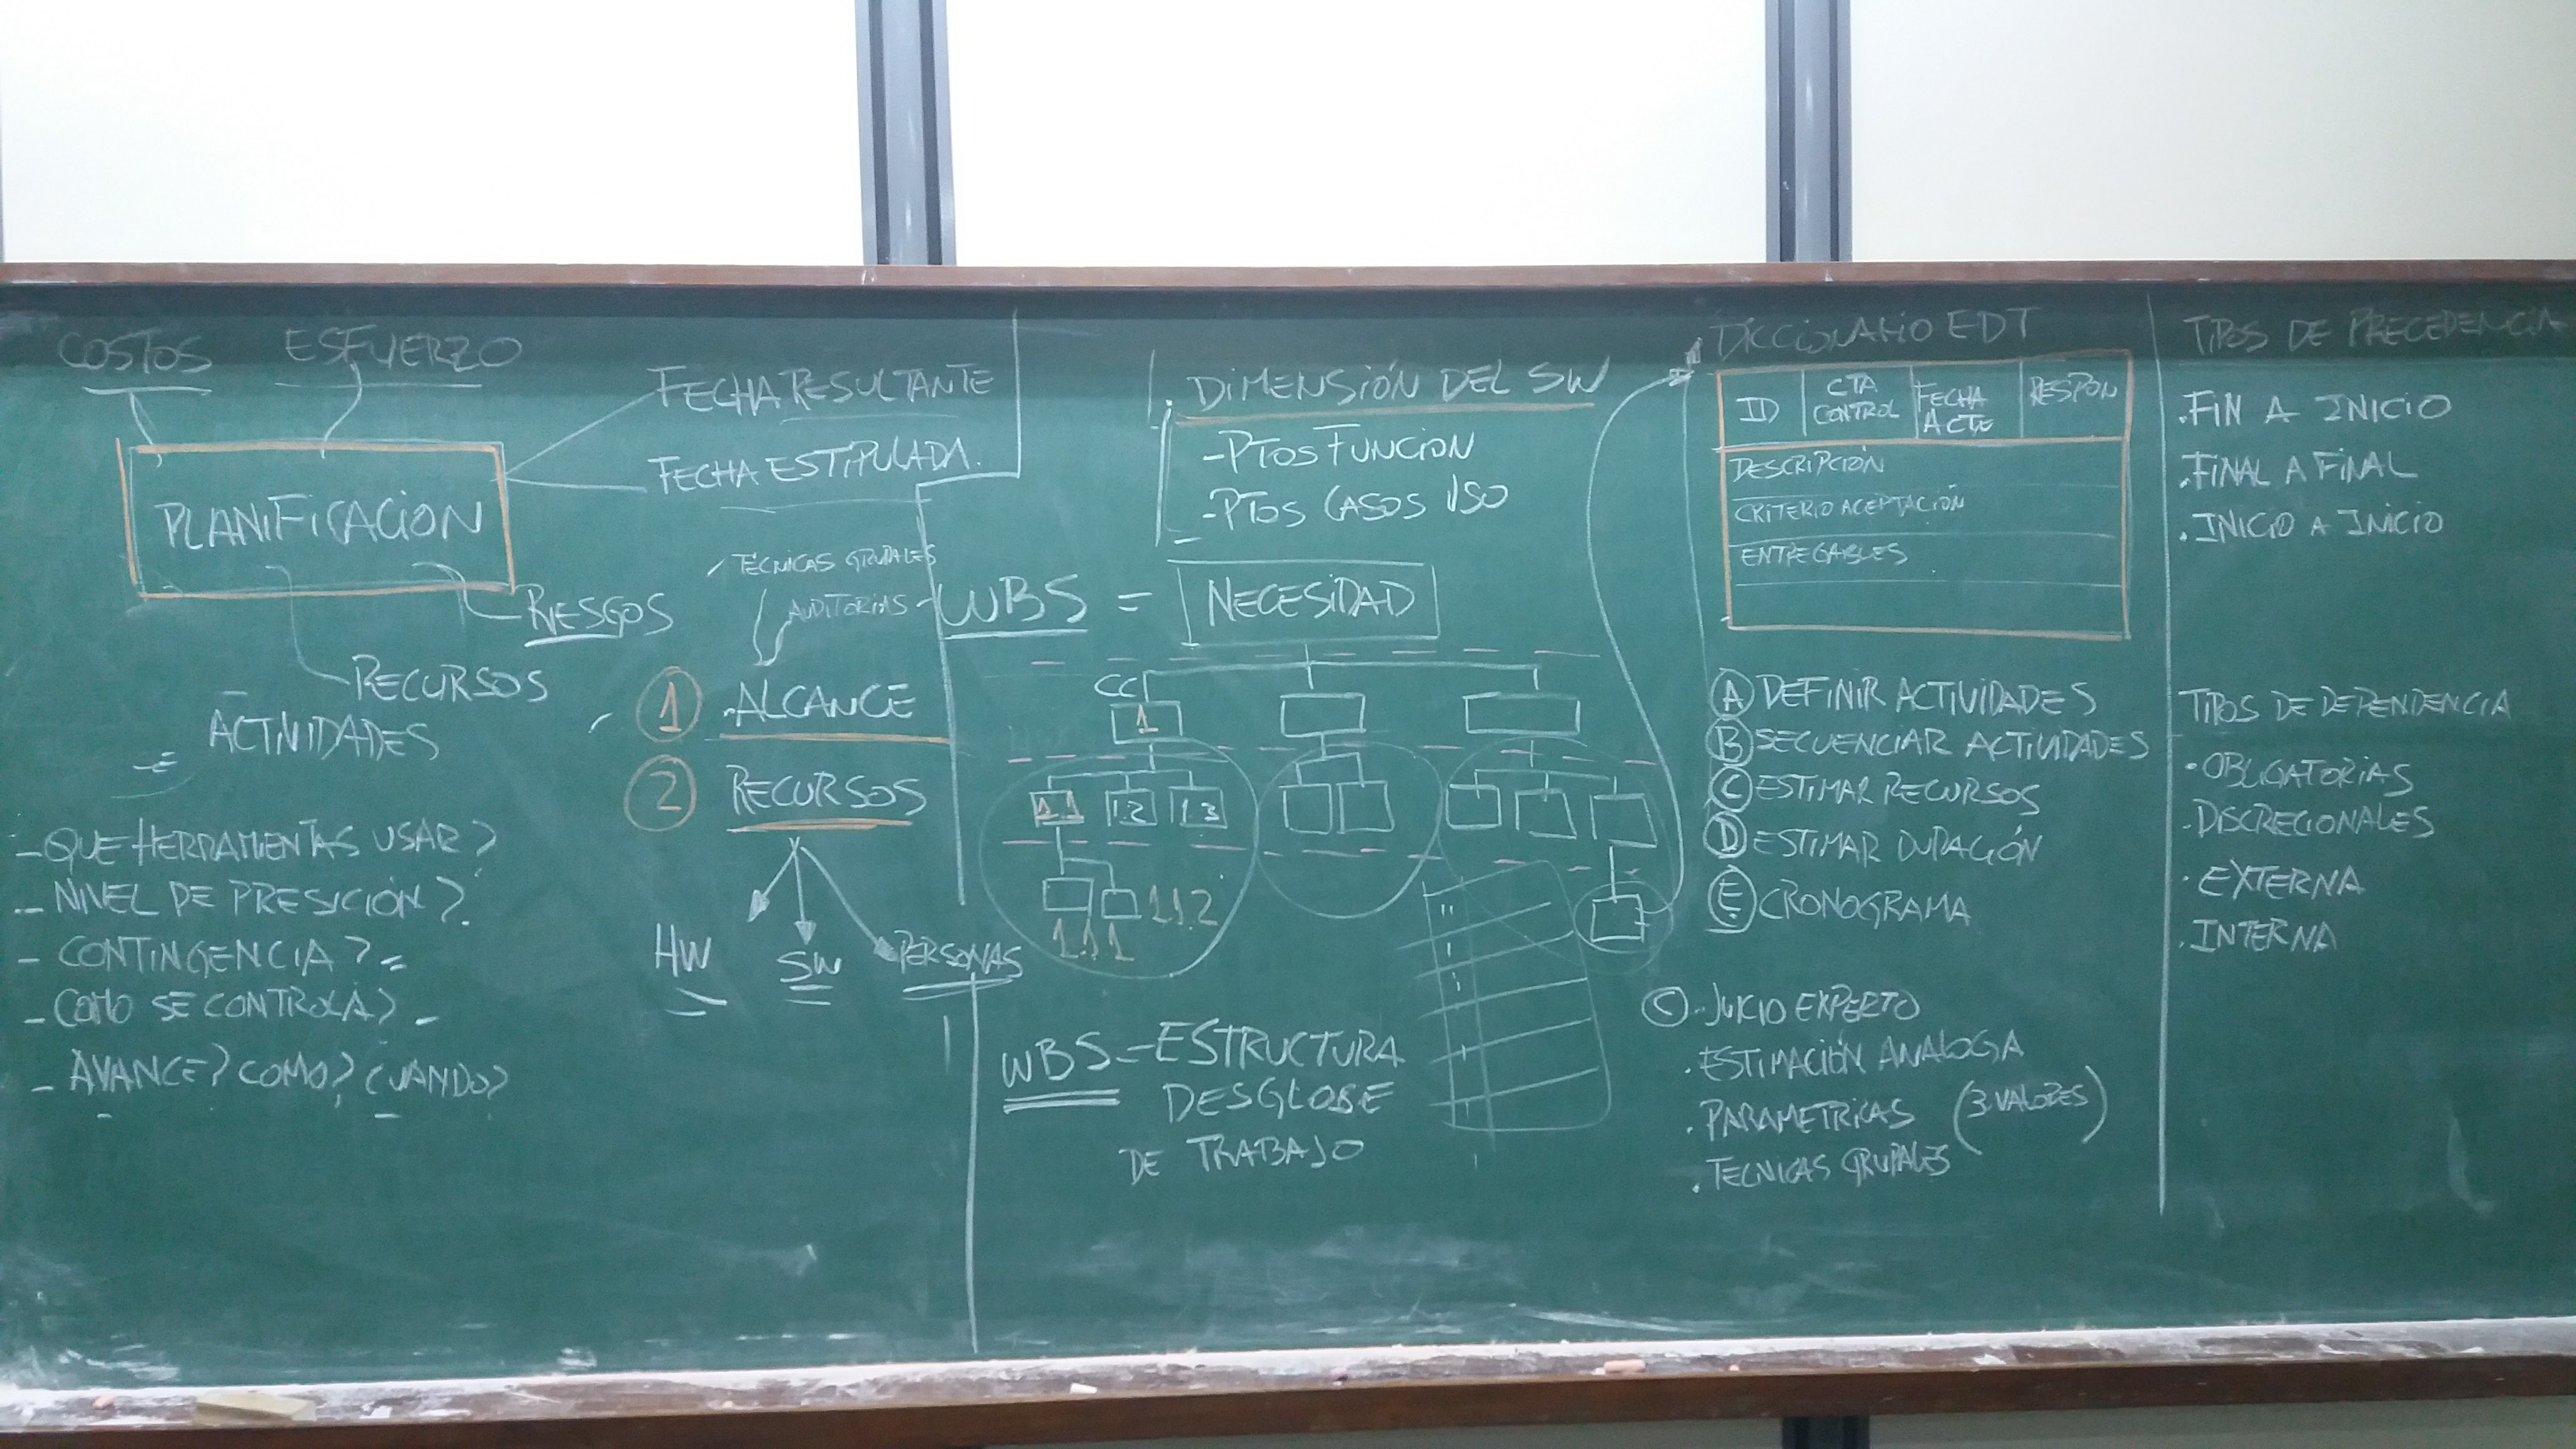 COSTOS ESFUERZO
FECHA RESULTANTE
FECHA ESTIPULADA.
PLANIFICACION
RIESGOS
RECURSOS
ACTIVIDADES
- QUE HERRAMIENTAS USAR?
- NIVEL DE PRESICIÓN?
- CONTINGENCIA?
- COMO SE CONTROLA?
- AVANCE? COMO? CUANDO?
TÉCNICAS GRUPALES
AUDITORIAS
1 ALCANCE
2 RECURSOS
HW SW PERSONAS
DIMENSIÓN DEL SW
- PTOS FUNCION
- PTOS CASOS USO
WBS = NECESIDAD
CC
1
1.1 1.2 1.3
1.1.1 1.1.2
WBS - ESTRUCTURA
DESGLOSE
DE TRABAJO
DICCIONARIO EDT
ID CTA CONTROL FECHA ACTE RESPON
DESCRIPCIÓN
CRITERIO ACEPTACIÓN
ENTREGABLES
A DEFINIR ACTIVIDADES
B SECUENCIAR ACTIVIDADES
C ESTIMAR RECURSOS
D ESTIMAR DURACIÓN
E CRONOGRAMA
C . JUICIO EXPERTO
. ESTIMACIÓN ANALOGA
. PARAMETRICAS (3 VALORES)
. TECNICAS GRUPALES
TIPOS DE PRECEDENCIA
. FIN A INICIO
. FINAL A FINAL
. INICIO A INICIO
TIPOS DE DEPENDENCIA
. OBLIGATORIAS
. DISCRECIONALES
. EXTERNA
. INTERNA